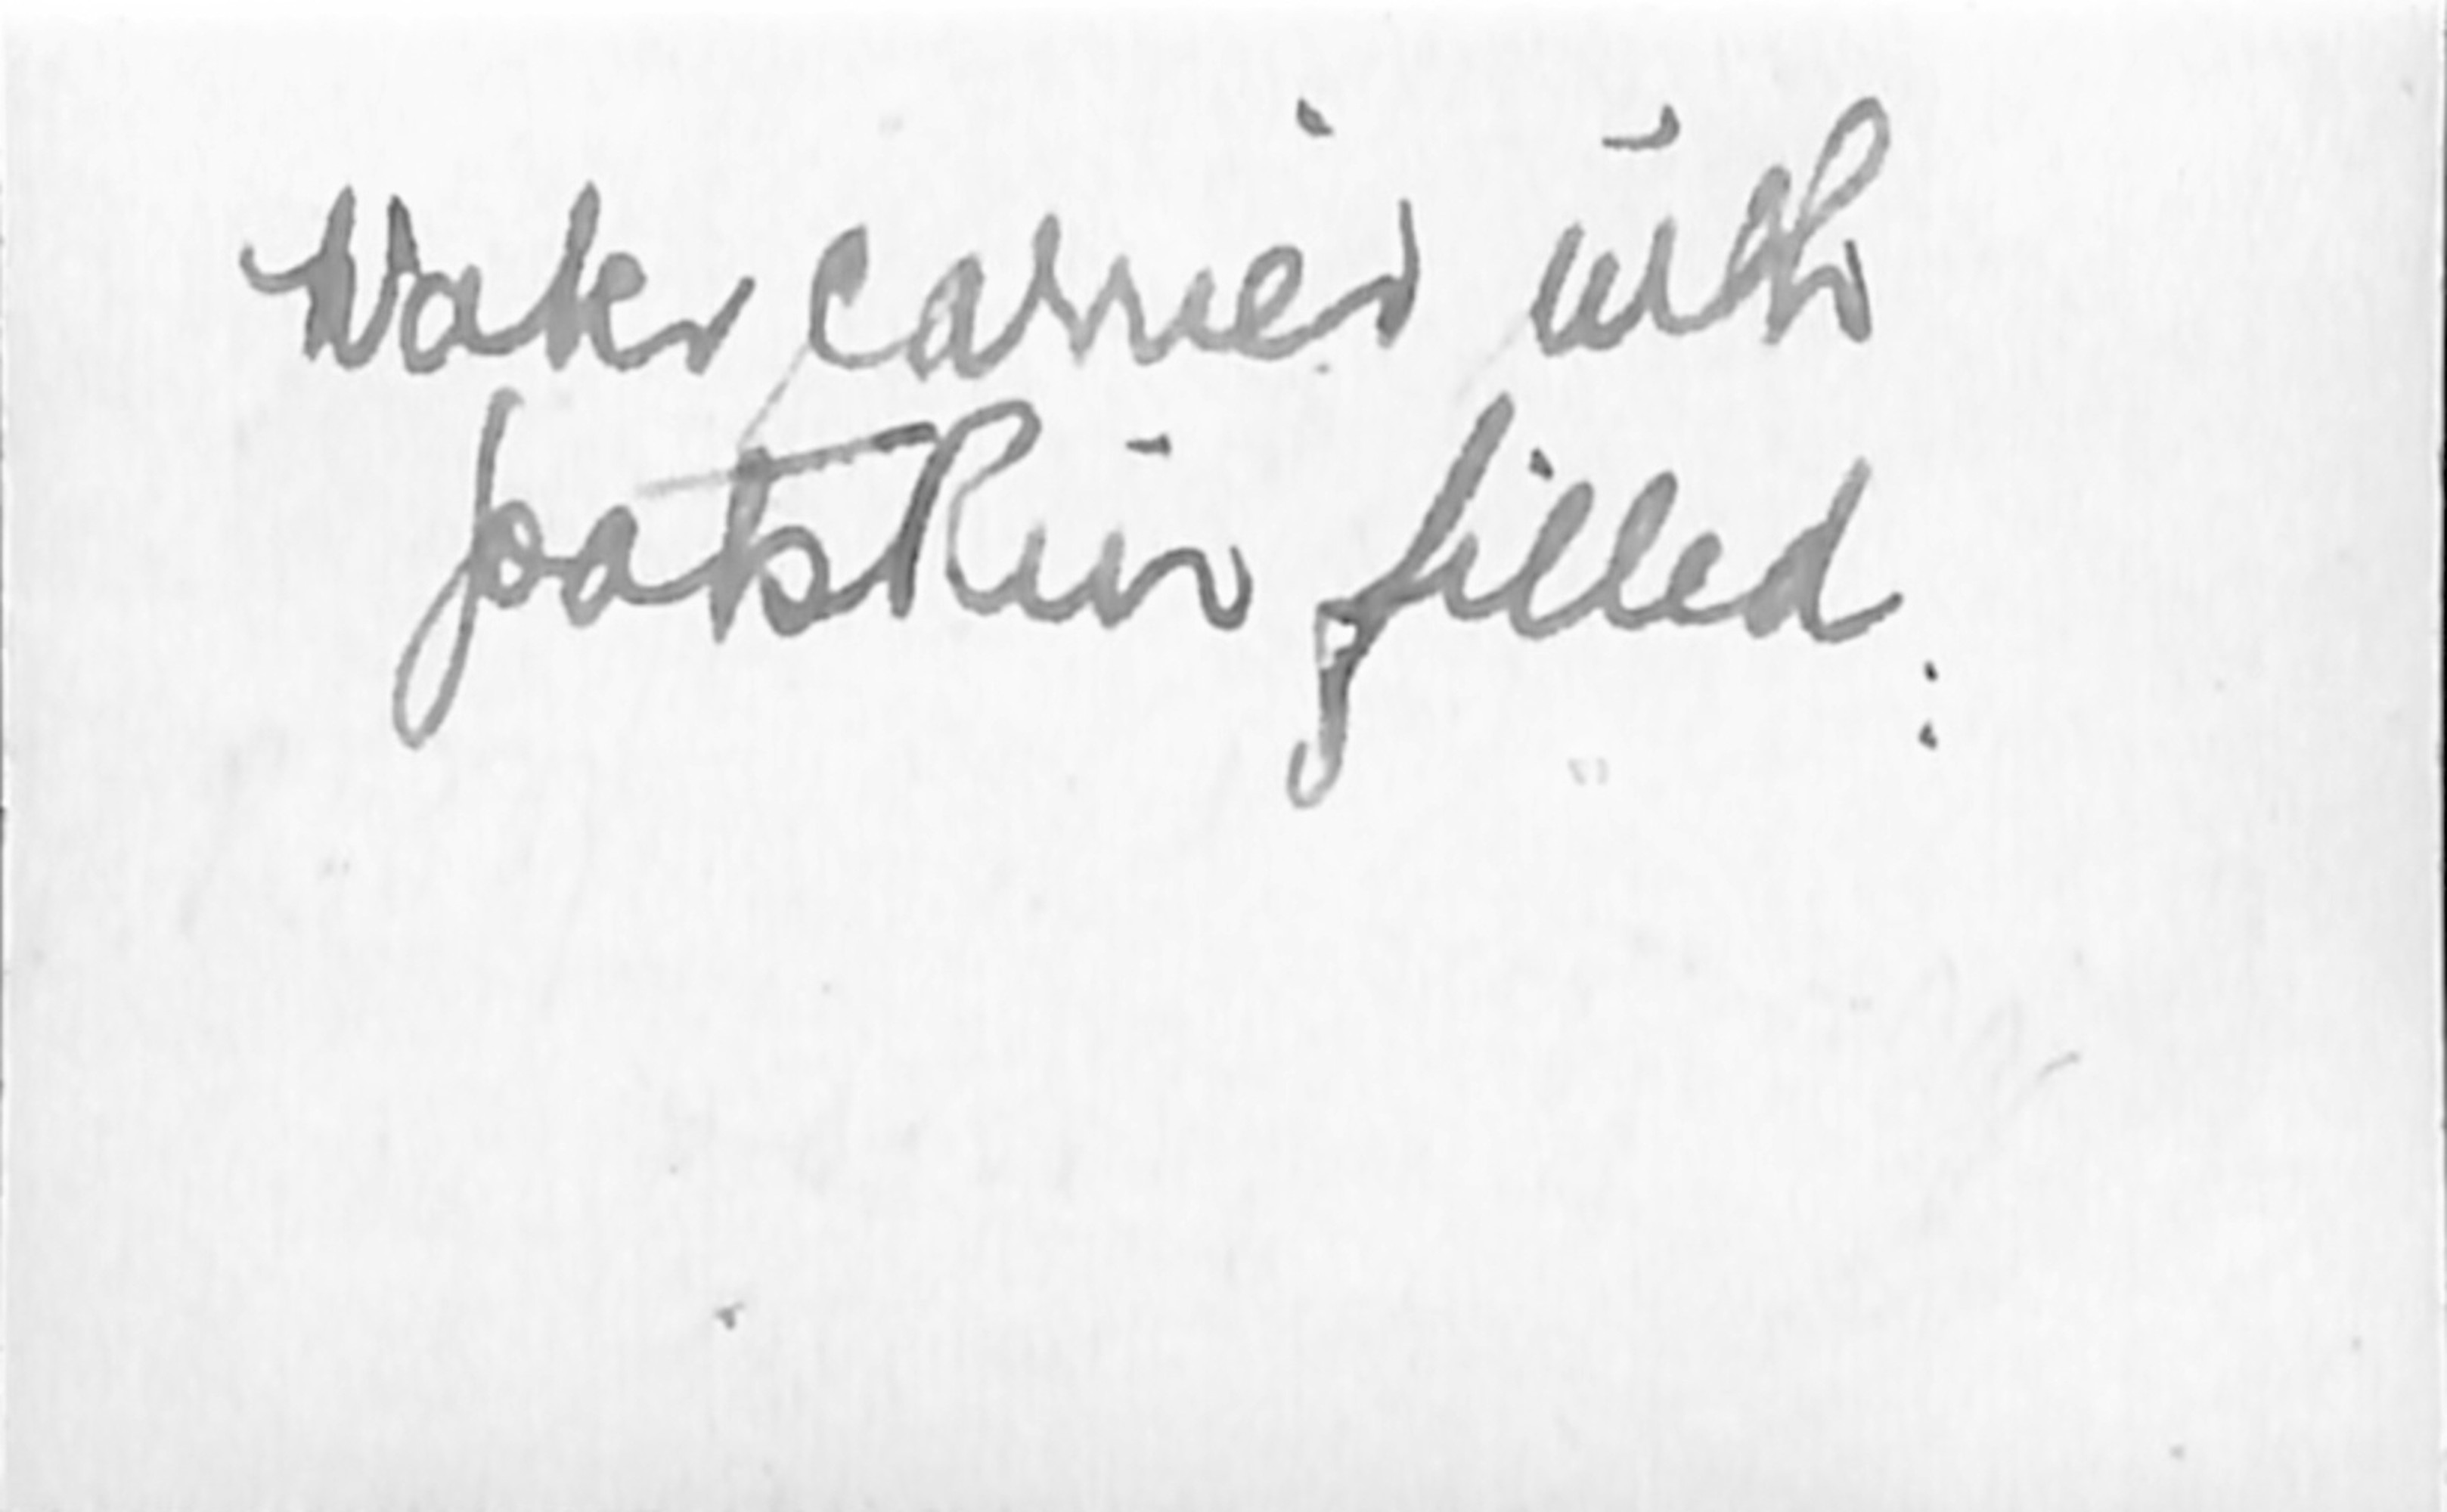 Water carrier with
goatskin filled.